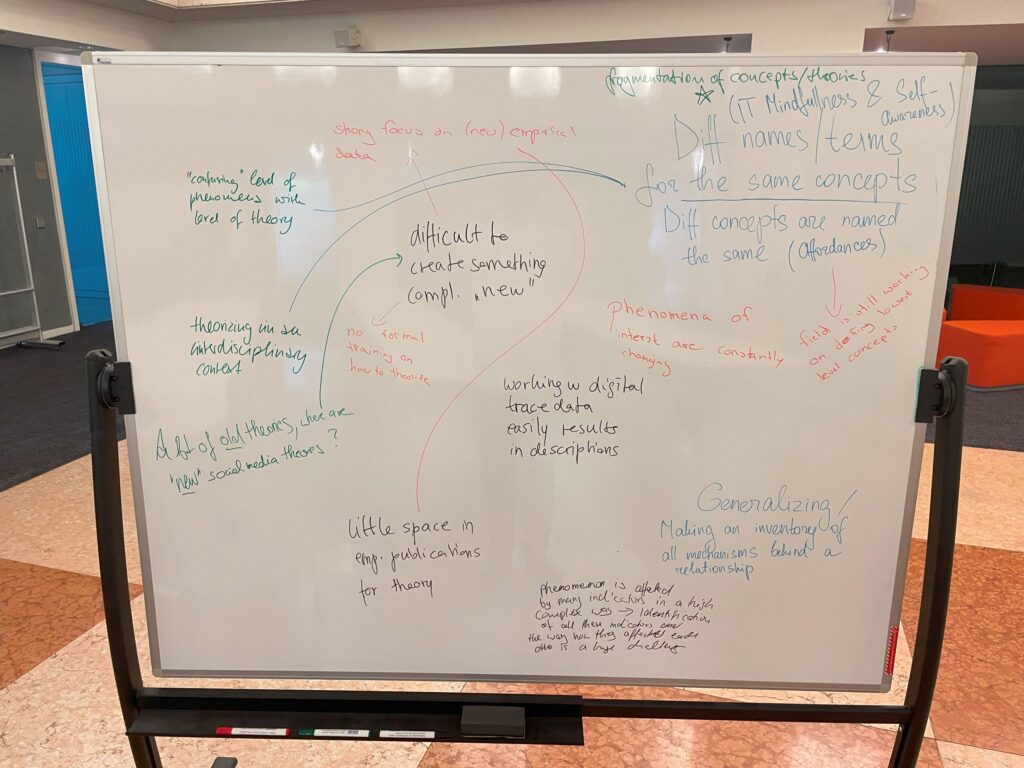 fragmentation of concepts/theories
(IT Mindfullness & Self-
Awareness)
Diff names/terms
for the same concepts
Diff concepts are named
the same (Affordances)
strong focus on (new) empirical
data
"confusing" level of
phenomena with
level of theory
difficult to
create something
compl. „new"
theorizing in an
interdisciplinary
context
no formal
training on
how to theorize
phenomena of
interst are constantly
changing
field is still working
on defining lowest
level concepts
working w digital
trace data
easily results
in descriptions
A lot of old theories, where are
"new" social media theories?
Generalizing/
Making an inventory of
all mechanisms behind a
relationship
little space in
emp. publications
for theory
phenomenon is affected
by many indicators in a high
complex way → Identification
of all these indicators and
the way how they affected each
other is a huge challenge